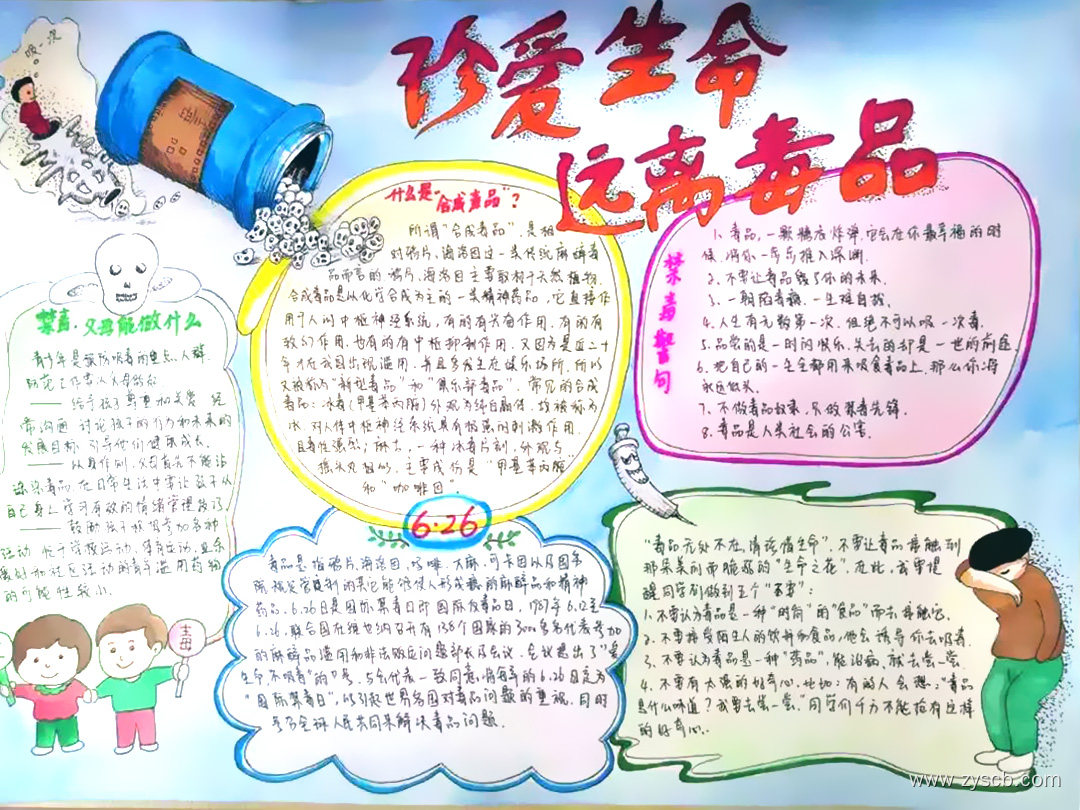 珍爱生命
远离毒品
吸一次
什么是"合成毒品"?
所谓"合成毒品",是相
对鸦片、海洛因这一类传统麻醉毒
品而言的。鸦片、海洛因主要取材于天然植物,
合成毒品是以化学合成为主的一类精神药品,它直接作
用于人的中枢神经系统,有的有兴奋作用,有的有
致幻作用,也有的有中枢抑制作用。又因为是近二十
年才在我国出现滥用,并且多发生在娱乐场所,所以
又被称为"新型毒品"和"俱乐部毒品"。常见的合成
毒品:冰毒(甲基苯丙胺)外观为纯白晶体,故被称为
冰,对人体中枢神经系统具有极强的刺激作用,
且毒性强烈;麻古,一种冰毒片剂,外观与
摇头丸相似,主要成份是"甲基苯丙胺"
和"咖啡因"
禁毒警句
1、毒品,一颗糖衣炸弹,它会在你最幸福的时
候,将你一步步推入深渊.
2、不要让毒品毁了你的未来.
3、一朝陷毒瘾,一生难自拔.
4、人生有无数第一次,但绝不可以吸一次毒.
5、品尝的是一时的快乐,失去的却是一世的前途.
6、把自己的一生全都用来吸食毒品上,那么你将
永远低头.
7、不做毒品奴隶,只做禁毒先锋.
8、毒品是人类社会的公害.
禁毒,父母能做什么
青少年是预防吸毒的重点人群
防范工作要从父母做起
——给予孩子尊重和关爱,经
常沟通,讨论孩子的行为和未来的
发展目标,引导他们健康成长.
——以身作则,父母首先不能沾
染毒品,在日常生活中要让孩子从
自己身上学习有效的情绪管理技巧
——鼓励孩子积极参加各种
活动,长于学校运动、体育生活、业余
爱好和社区活动的青年滥用药物
的可能性较小.
毒
6·26
毒品是指鸦片、海洛因、吗啡、大麻、可卡因以及国务
院规定管制的其它能够使人形成瘾的麻醉品和精神
药品。6.26日是国际禁毒日即国际反毒品日,1987年6.12至
6.26,联合国在维也纳召开有138个国家的3000多名代表参加
的麻醉品滥用和非法贩运问题部长级会议,会议提出了"爱
生命,不吸毒"的口号,与会代表一致同意,将每年的6.26日定为
"国际禁毒日",以引起世界各国对毒品问题的重视,同时
号召全球人民共同来解决毒品问题.
"毒品无处不在,请珍惜生命",不要让毒品接触到
那朵美丽而脆弱的"生命之花",在此,我要提
醒同学们做到五个"不要":
1.不要认为毒品是一种"时尚"的"食品"而去接触它.
2、不要接受陌生人的饮料和食品,他会诱导你去吸毒.
3、不要认为毒品是一种"药品",能治病,就去尝一尝.
4、不要有太强的好奇心,比如:有的人会想:"毒品
是什么味道?我要去尝一尝."同学们千万不能抱有这样
的好奇心.
www.zyscb.com